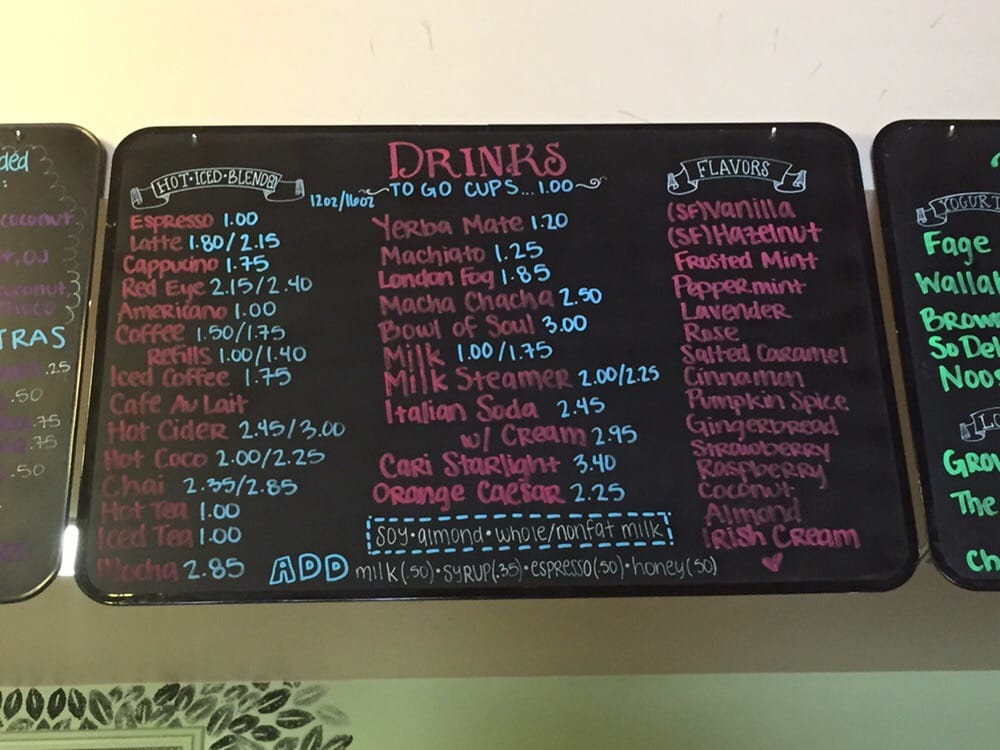 DRINKS
TO GO CUPS... 1.00
HOT·ICED·BLENDED
12oz/16oz
Espresso 1.00
Latte 1.80/2.15
Cappucino 1.75
Red Eye 2.15/2.40
Americano 1.00
Coffee 1.50/1.75
Refills 1.00/1.40
Iced Coffee 1.75
Cafe Au Lait
Hot Cider 2.45/3.00
Hot Coco 2.00/2.25
Chai 2.35/2.85
Hot Tea 1.00
Iced Tea 1.00
Mocha 2.85
Yerba Mate 1.20
Machiato 1.25
London Fog 1.85
Macha Chacha 2.50
Bowl of Soul 3.00
Milk 1.00/1.75
Milk Steamer 2.00/2.25
Italian Soda 2.45
w/ Cream 2.95
Cari Starlight 3.40
Orange Caesar 2.25
soy·almond·whole/nonfat milk
ADD milk(.50)·syrup(.35)·espresso(.50)·honey(.50)
FLAVORS
(SF)Vanilla
(SF)Hazelnut
Frosted Mint
Peppermint
Lavender
Rose
Salted Caramel
Cinnamon
Pumpkin Spice
Gingerbread
Strawberry
Raspberry
Coconut
Almond
Irish Cream
ded
coconut
, OJ
TRAS
.25
.50
.75
.75
.50
YOGURT
Fage
Wallab
Brown
So Del
Noos
Grou
The
Ch